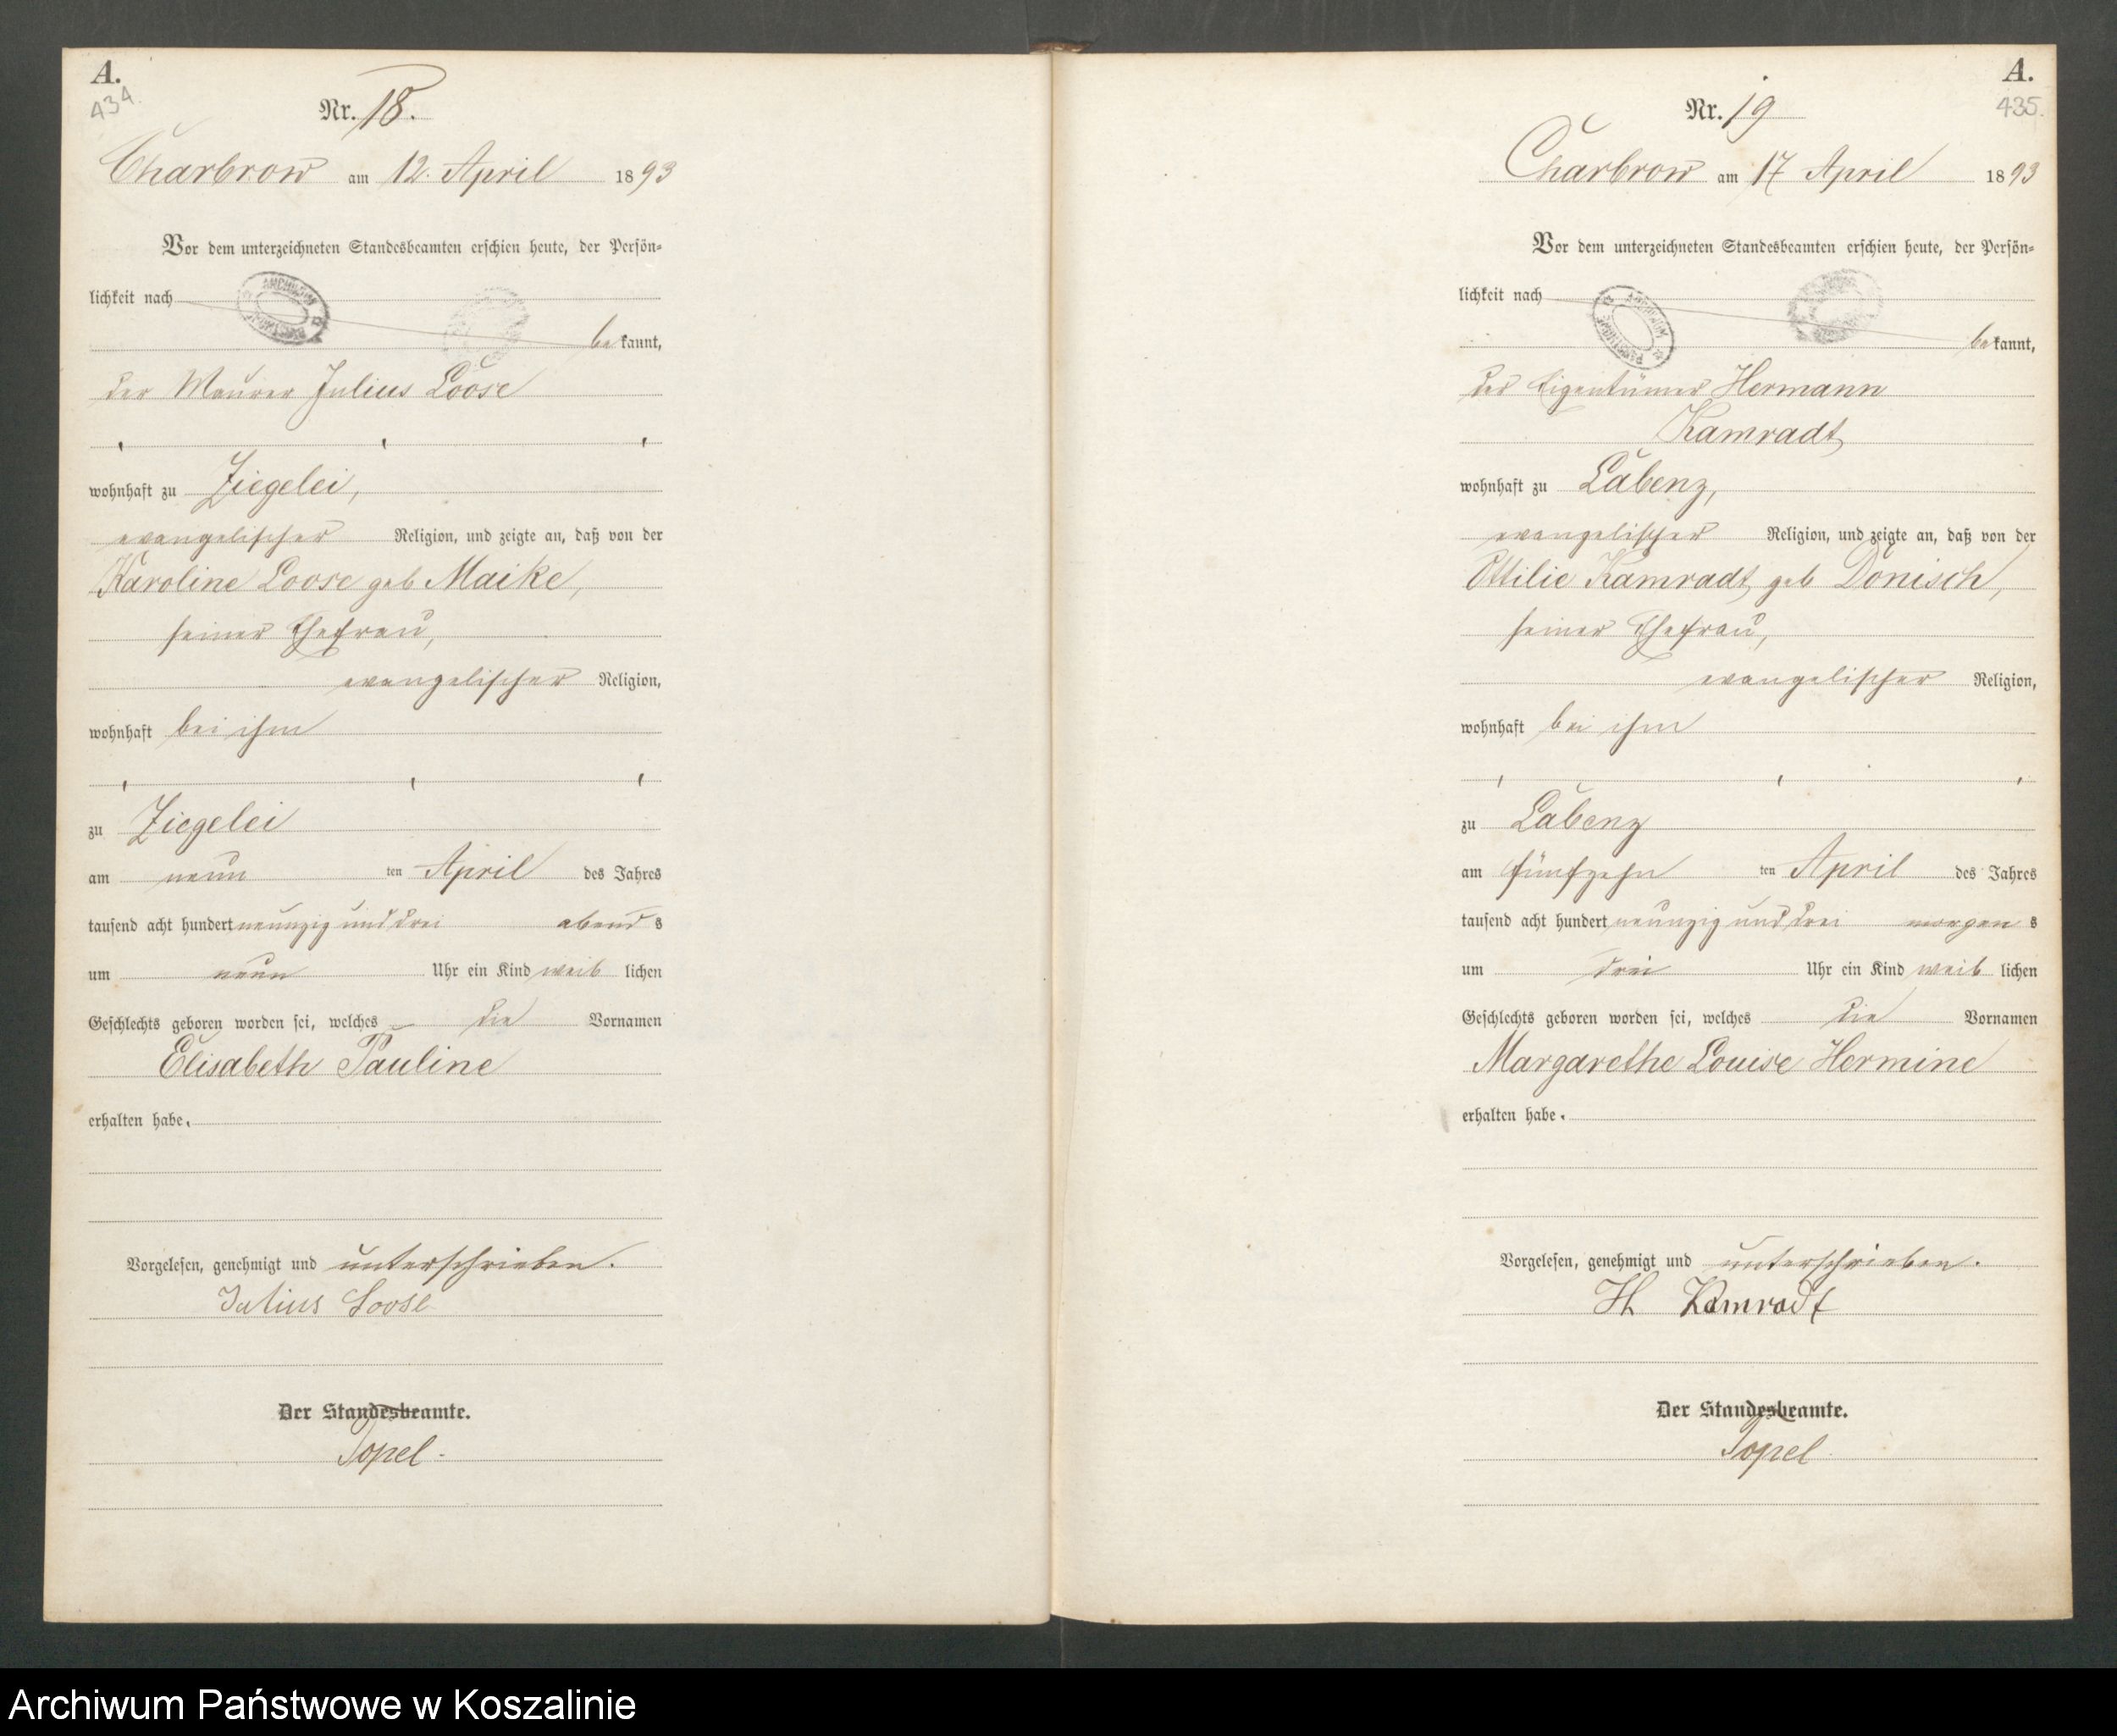 A.
434.
Nr. 18.
Charbrow am 12. April 1893
Vor dem unterzeichneten Standesbeamten erschien heute, der Persön-
lichkeit nach
bekannt,
der Maurer Julius Loose
wohnhaft zu Ziegelei,
evangelischer Religion, und zeigte an, daß von der
Karoline Loose geb Maike,
seiner Ehefrau,
evangelischer Religion,
wohnhaft bei ihm
zu Ziegelei
am neun ten April des Jahres
tausend acht hundert neunzig und drei abends
um neun Uhr ein Kind weiblichen
Geschlechts geboren worden sei, welches die Vornamen
Elisabeth Pauline
erhalten habe.
Vorgelesen, genehmigt und unterschrieben.
Julius Loose
Der Standesbeamte.
Topel.
A.
435.
Nr. 19
Charbrow am 17 April 1893
Vor dem unterzeichneten Standesbeamten erschien heute, der Persön-
lichkeit nach
bekannt,
der Eigentümer Hermann
Kamradt
wohnhaft zu Labenz,
evangelischer Religion, und zeigte an, daß von der
Ottilie Kamradt geb Donisch,
seiner Ehefrau,
evangelischer Religion,
wohnhaft bei ihm
zu Labenz
am fünfzehn ten April des Jahres
tausend acht hundert neunzig und drei morgens
um drei Uhr ein Kind weiblichen
Geschlechts geboren worden sei, welches die Vornamen
Margarethe Louise Hermine
erhalten habe.
Vorgelesen, genehmigt und unterschrieben.
H Kamradt
Der Standesbeamte.
Topel
Archiwum Państwowe w Koszalinie